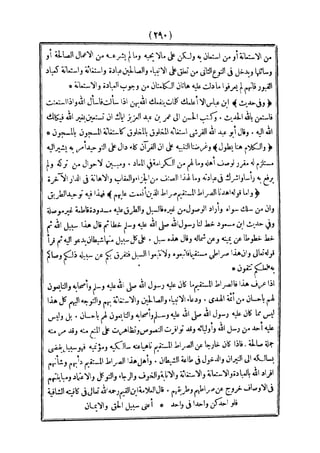 ﴿ ٢٩٠ ﴾
من الاستعانة أو من استعان به ولكن على مالا يجبه وما لم يشرعه من الاعمال الصالحة أو
وسائلها ويدخل فى النوع الثانى من تعلق على الانبياء والصالحين عبادة واستعانة كعباد
القبور فانهم لم يعرفوا ما دلت عليه هاتان الكلمتان من وجوب العبادة والاستعانة *
﴿ وفى حديث ﴾ ابن عباس ألا أعلمك كلمات ينفعك الله بهن اذا سألت فاسأل الله واذا استعنت
فاستعن بالله الحديث . وكتب الحسن الى عمر بن عبد العزيز اياك ان تستعين بغير الله فيكلك
الله اليه . وقال أبو عبد الله القرشى استغاثة المخلوق بالمخلوق كاستغاثة المسجون بالمسجون *
﴿ والكلام هنا يطول ﴾ وغرضنا التنبيه على ان القرآن كله دال على التوحيد آمر به يشير اليه
مستلزم له مقرر لوصف أهله وما لهم من الكرامة فى المعاد . ومبين لاحوال من تركه ولم
يرفع به رأسا واشرك فى عبادته وما لهذا الصنف من الجزاء والعقاب والاهانة فى الدار الآخرة
﴿ وأما قوله اهدنا الصراط المستقيم صراط الذين أنعمت عليهم ﴾ فهذا فيه توحيد الطريق
وان من سلك سواه وأراد الوصول من غيره فالسبل والطرق عليه مسدودة قاطعة غير موصلة
وفى حديث ابن مسعود خط لنا رسول الله صلى الله عليه وسلم خطا ثم قال هذا سبيل الله ثم
خط خطوطا عن يمينه وعن شماله وقال هذه سبل . على كل سبيل منها شيطان يدعو اليه ثم قرأ
قوله تعالى وان هذا صراطى مستقيما فاتبعوه ولا تتبعوا السبل فتفرق بكم عن سبيله ذلكم وصاكم
به لعلكم تتقون *
اذا عرف هذا فالصراط المستقيم ما كان عليه رسول الله صلى الله عليه وسلم وأصحابه والتابعون
لهم باحسان من أئمة الهدى . ودعاء الانبياء والصالحين والاستغاثة بهم والتوجه اليهم كل هذا
ليس مما كان عليه رسول الله صلى الله عليه وسلم وأصحابه والتابعون لهم باحسان . بل وليس
عليه أحد من رسل الله وأوليائه وقد تواترت النصوص وتظاهرت على المنع منه وقد مر منه
جملة صالحة . فاذا كان خارجا عن الصراط المستقيم ناهيا عنه فهو سبيل يفضى
بسالكه الى النيران والدخول فى طاعة الشيطان . وأهل هذا الصراط المستقيم دأبهم وشأنهم
افراد الله بالعبادة والاستعانة والاستغاثة والانابة والخوف والرجاء والتوكل والاعتماد
فى الاوصاف خروج عن صراطهم وطريقهم . قال العلامة ابن القيم رحمه الله تعالى فى كافيته الشافية
فلواحد كن واحدا فى واحد * أعنى سبيل الحق والايمان